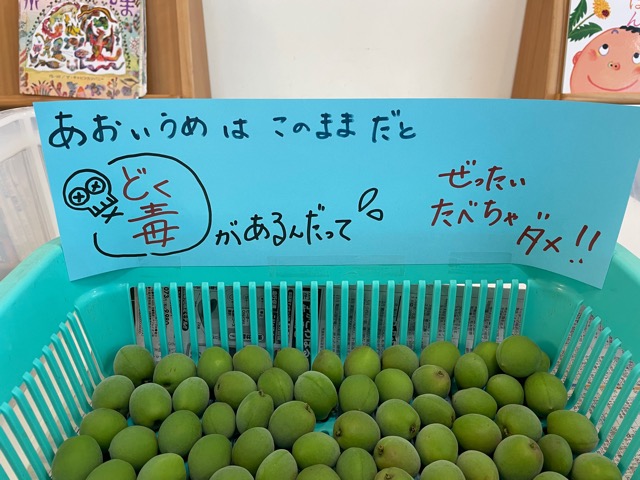 あおいうめは このままだと
どく
毒
があるんだって
ぜったい
たべちゃ
ダメ!!